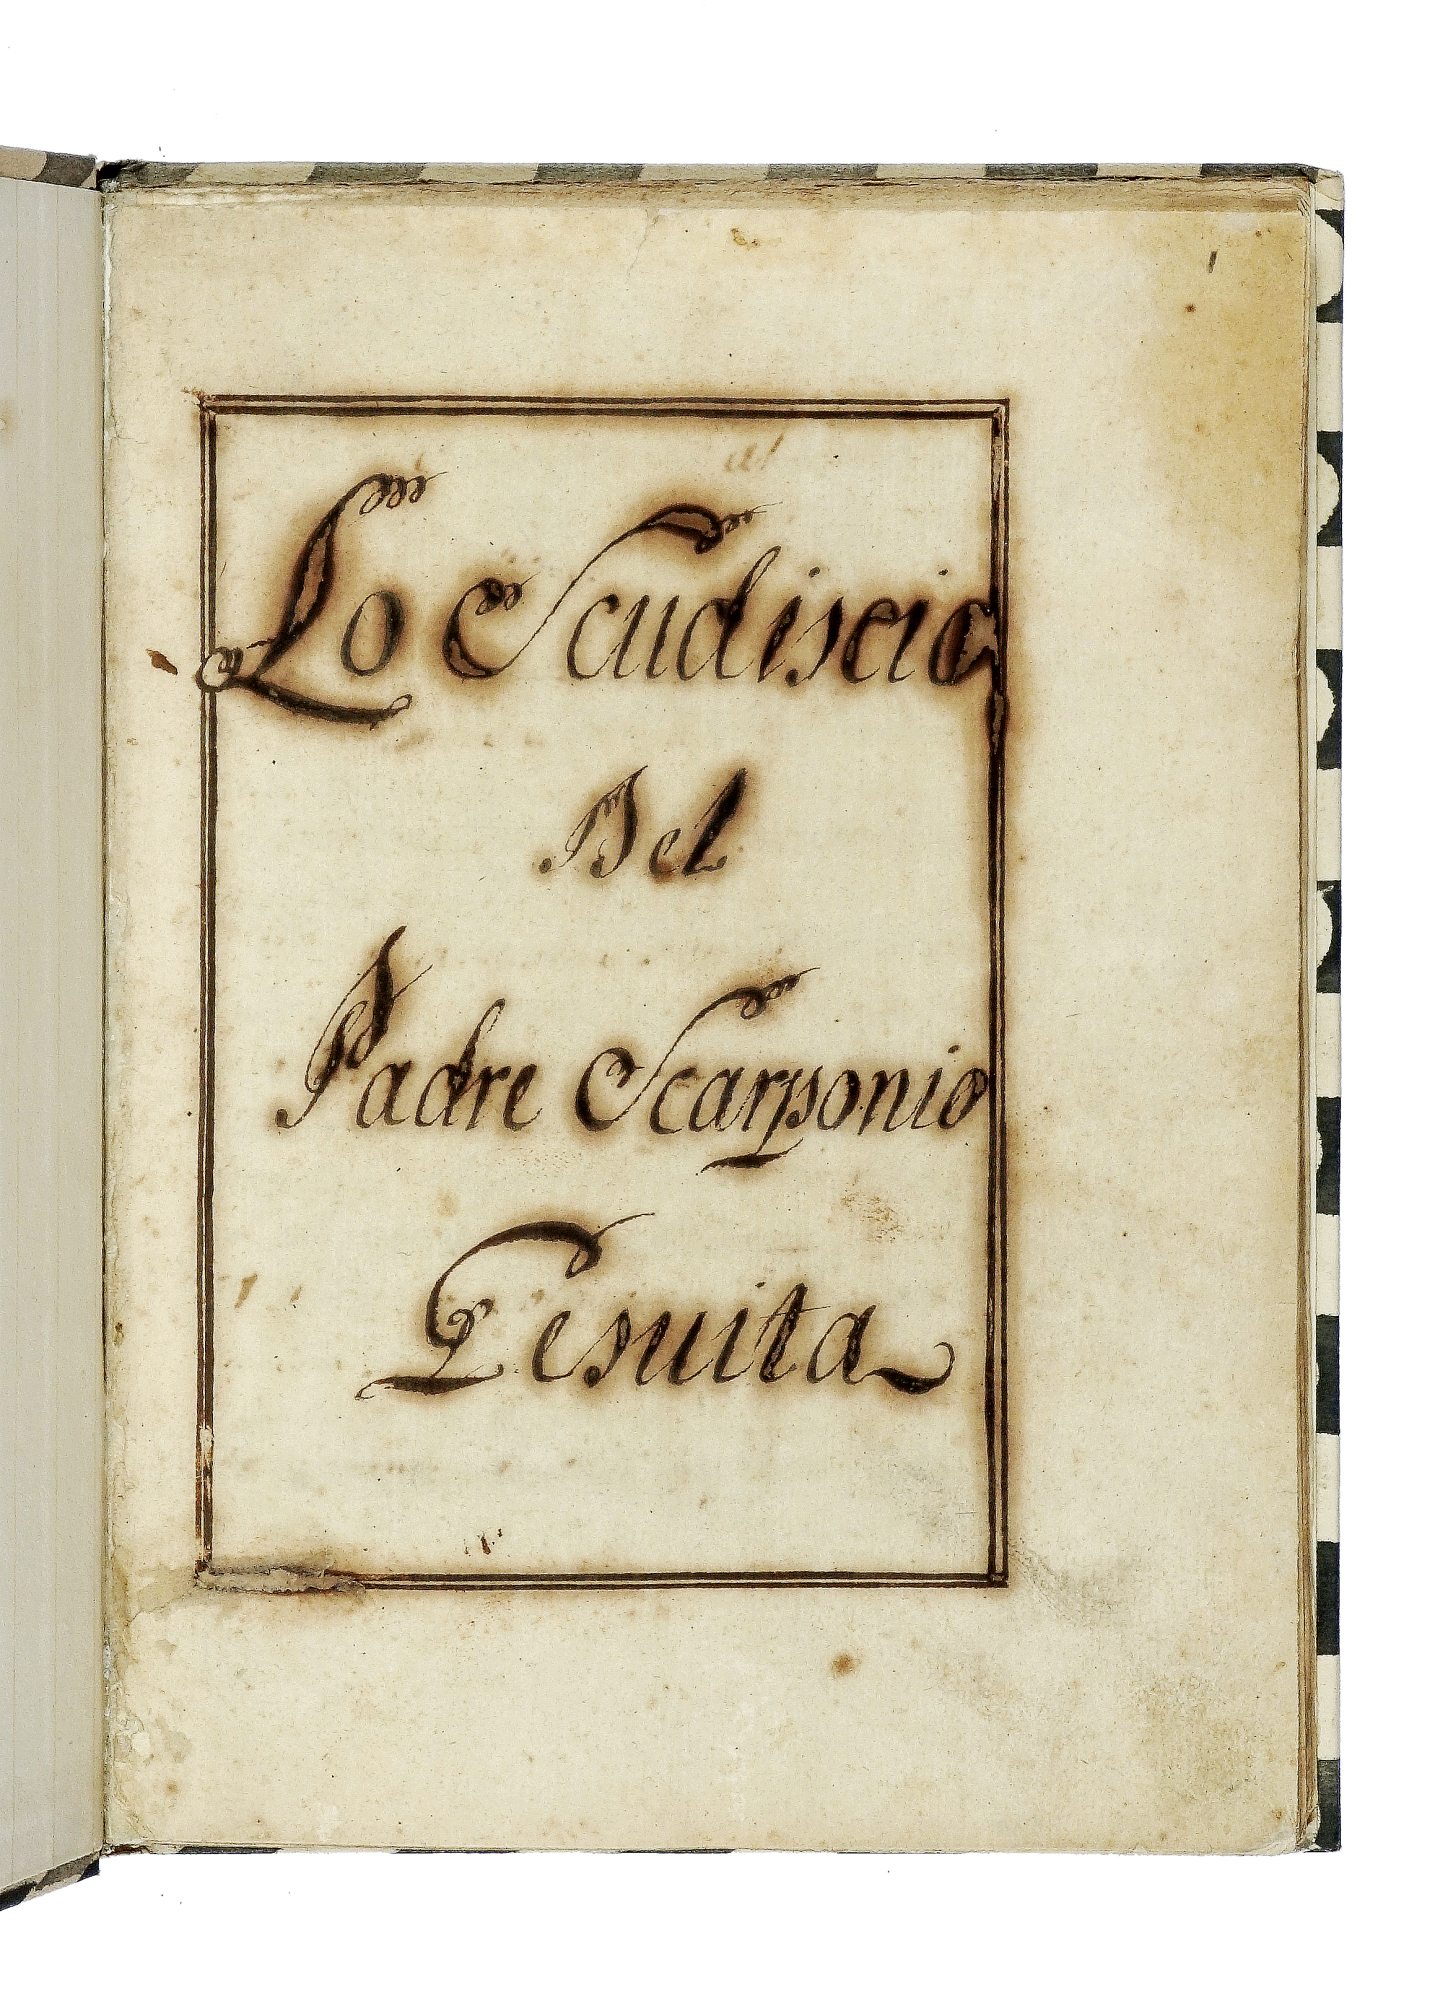 1
Lo Scudiscio
Del
Padre Scarponio
Gesuita